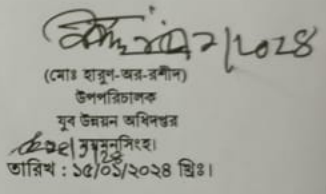 ২/২০২৪
(মোঃ হারুণ-অর-রশীদ)
উপপরিচালক
যুব উন্নয়ন অধিদপ্তর
ময়মনসিংহ।
তারিখ : ১৫/০১/২০২৪ খ্রিঃ।